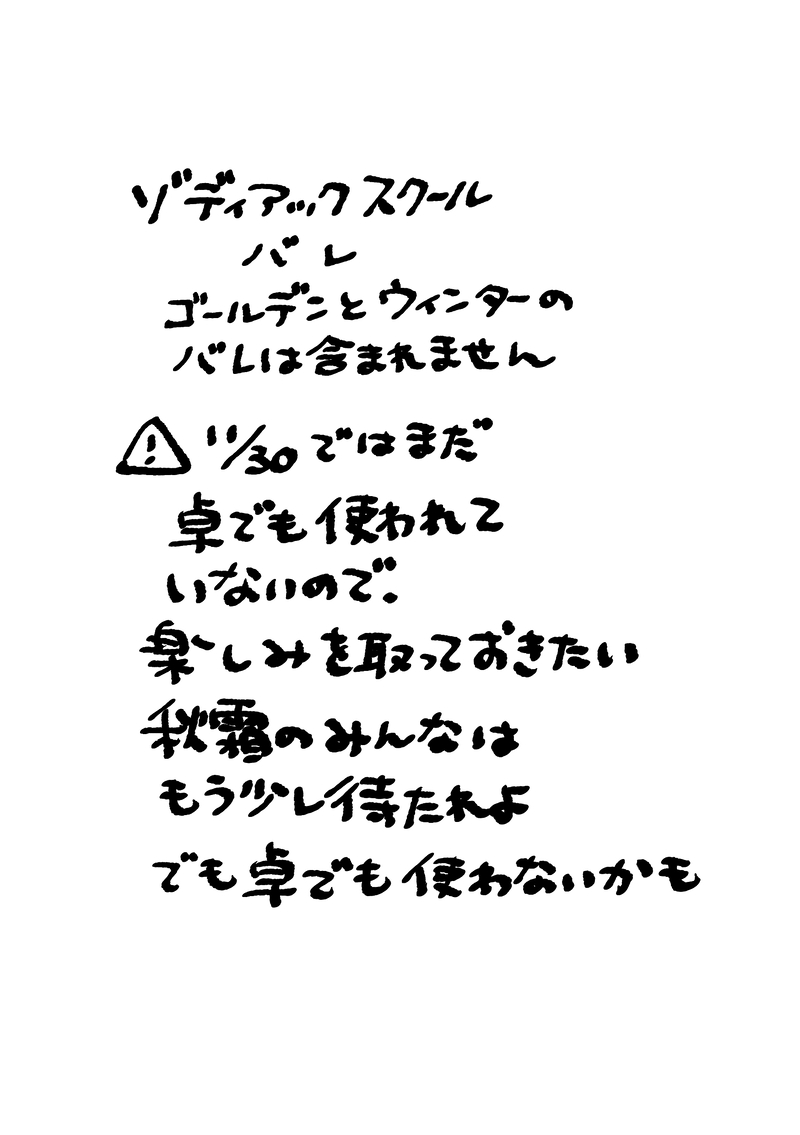 ゾディアックスクール
バレ
ゴールデンとウィンターの
バレは含まれません
⚠ 11/30ではまだ
卓でも使われて
いないので、
楽しみを取っておきたい
秋霜のみんなは
もう少し待たれよ
でも卓でも使わないかも